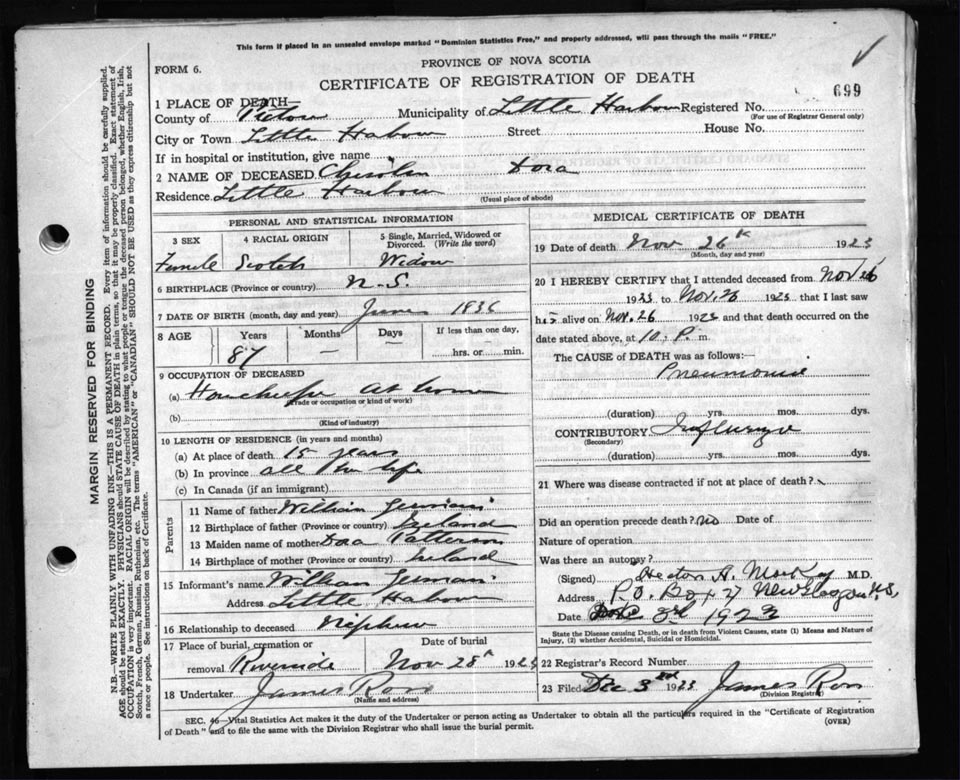 This form if placed in an unsealed envelope marked "Dominion Statistics Free," and properly addressed, will pass through the mails "FREE."
PROVINCE OF NOVA SCOTIA
FORM 6.
CERTIFICATE OF REGISTRATION OF DEATH
699
1 PLACE OF DEATH—
County of Pictou Municipality of Little Harbour Registered No.
(For use of Registrar General only)
City or Town Little Habour Street House No.
If in hospital or institution, give name
2 NAME OF DECEASED Chisolm Dora
Residence Little Harbour
(Usual place of abode)
PERSONAL AND STATISTICAL INFORMATION
3 SEX 4 RACIAL ORIGIN 5 Single, Married, Widowed or Divorced. (Write the word)
Female Scotch Widow
6 BIRTHPLACE (Province or country) N.S.
7 DATE OF BIRTH (month, day and year) June 1836
8 AGE Years Months Days If less than one day,
87 — — hrs. or min.
9 OCCUPATION OF DECEASED
(a) Housekeeper at home
(Trade or occupation or kind of work)
(b)
(Kind of industry)
10 LENGTH OF RESIDENCE (in years and months)
(a) At place of death 15 years
(b) In province all her life
(c) In Canada (if an immigrant)
Parents
11 Name of father William
12 Birthplace of father (Province or country) Ireland
13 Maiden name of mother Dora Patterson
14 Birthplace of mother (Province or country) Ireland
15 Informant's name William
Address Little Habour
16 Relationship to deceased Nephew
17 Place of burial, cremation or Date of burial
removal Riverside Nov 28th 1923
18 Undertaker James Ross
(Name and address)
MEDICAL CERTIFICATE OF DEATH
19 Date of death Nov 26th 1923
(Month, day and year)
20 I HEREBY CERTIFY that I attended deceased from Nov 26
1923 to Nov. 26 1923 that I last saw
h alive on Nov. 26 1923 and that death occurred on the
date stated above, at 10. P. m.
The CAUSE of DEATH was as follows:—
Pneumonia
(duration) yrs. mos. dys.
CONTRIBUTORY Influenza
(Secondary)
(duration) yrs. mos. dys.
21 Where was disease contracted if not at place of death?
Did an operation precede death? No Date of
Nature of operation
Was there an autopsy?
(Signed) Hector H. McKay M.D.
Address P.O. Box 27 New Glasgow N.S.
Date 3rd 1923
State the Disease causing Death, or in death from Violent Causes, state (1) Means and Nature of
Injury, (2) whether Accidental, Suicidal or Homicidal.
22 Registrar's Record Number
23 Filed Dec 3rd 1923 James Ross
(Division Registrar)
SEC. 46—Vital Statistics Act makes it the duty of the Undertaker or person acting as Undertaker to obtain all the particulars required in the "Certificate of Registration
of Death" and to file the same with the Division Registrar who shall issue the burial permit.
(OVER)
MARGIN RESERVED FOR BINDING
N.B.—WRITE PLAINLY WITH UNFADING INK—THIS IS A PERMANENT RECORD. Every item of information should be carefully supplied.
AGE should be stated EXACTLY. PHYSICIANS should STATE CAUSE OF DEATH in plain terms, so that it may be properly classified. Exact statement of
OCCUPATION is very important. RACIAL ORIGIN will be described by stating to what people or tongue the deceased person belonged, whether English, Irish,
Scotch, French, German, Russian, Ruthenian, etc. The terms "AMERICAN" or "CANADIAN" SHOULD NOT BE USED as they express citizenship but not
a race or people. See instructions on back of Certificate.